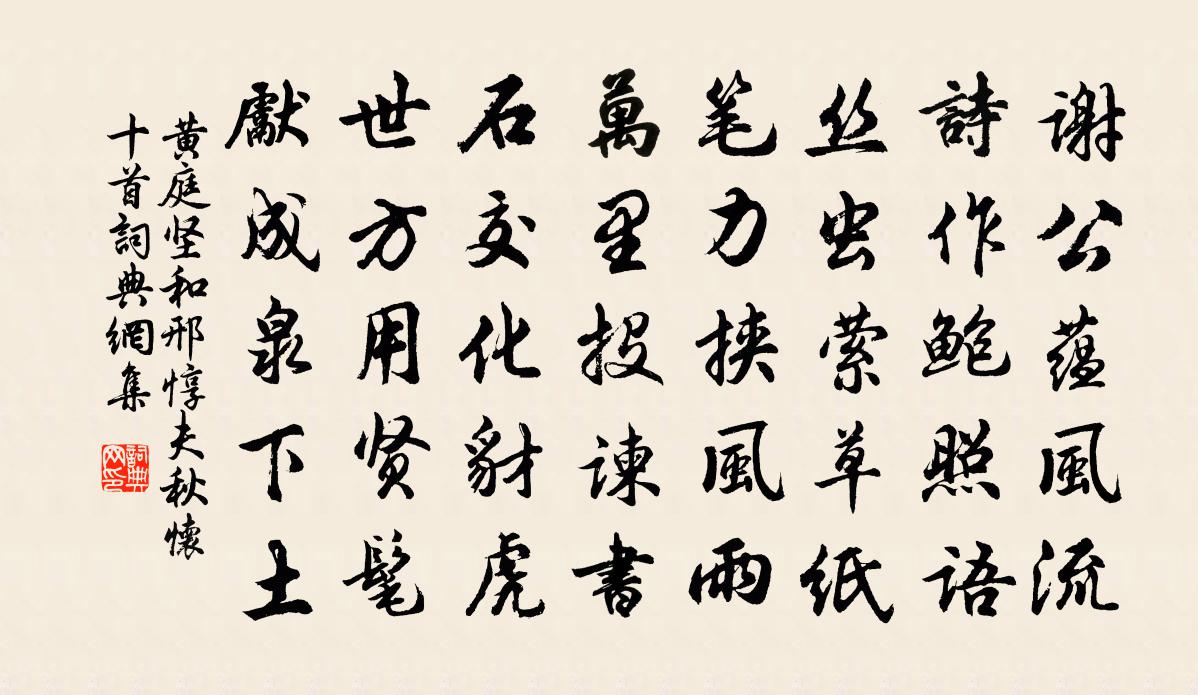 謝公蕴風流
詩作鮑照語
丝虫萦草纸
笔力挟風雨
萬里投諫書
石交化豺虎
世方用贤髦
獻成泉下土
黄庭坚和邢惇夫秋懷
十首詞典網集
詞典
网印